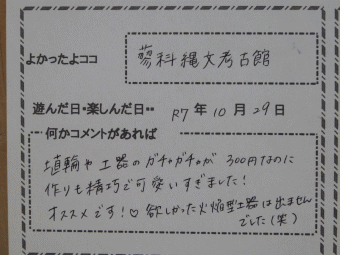 よかったよココ
蓼科縄文考古館
遊んだ日・楽しんだ日・・ R7年10月29日
何かコメントがあれば
埴輪や土器のガチャガチャが300円なのに
作りも精巧で可愛いすぎました!
オススメです!♡ 欲しかった火焔型土器は出ません
でした(笑)